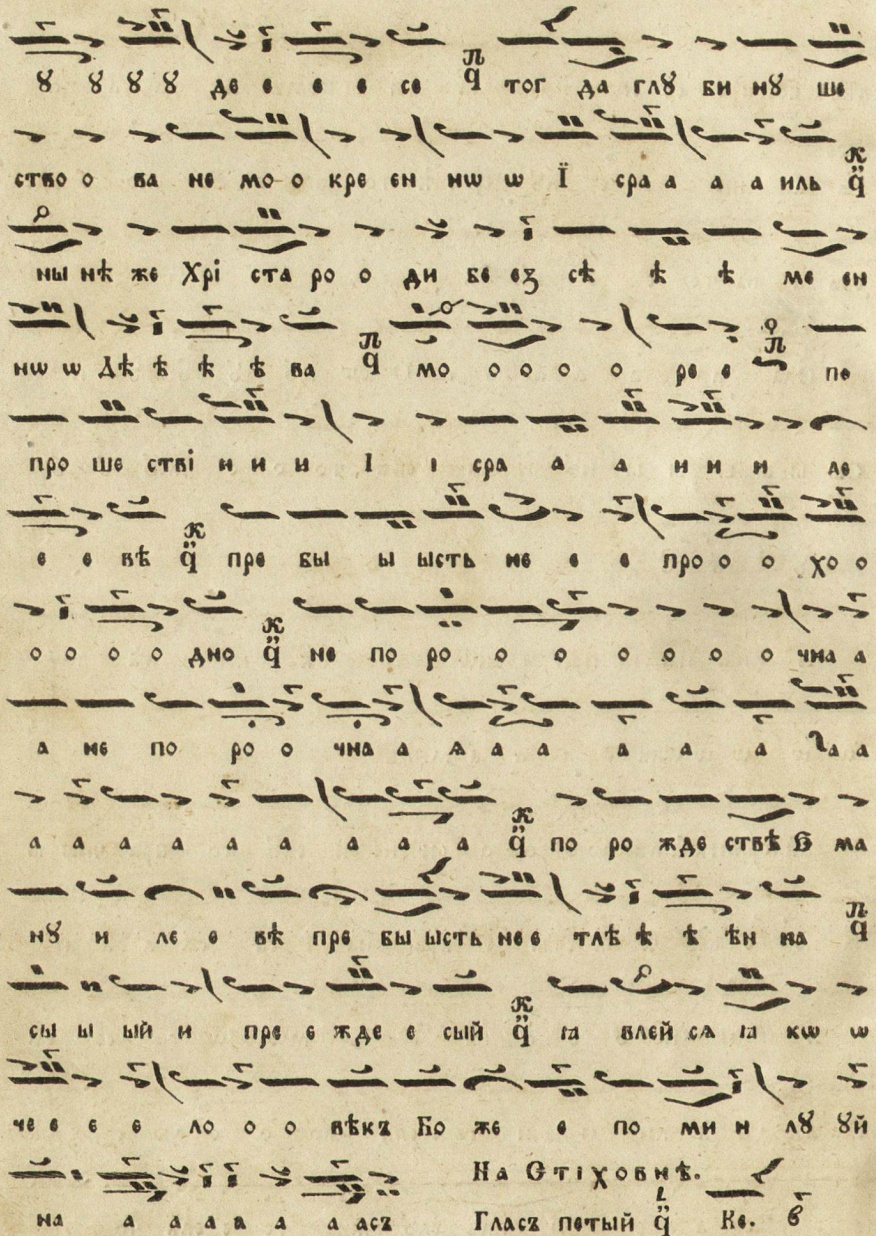 ꙋ ꙋ ꙋ ꙋ де е е е се тог да глꙋ би нꙋ ше
ство о ва не мо о кре ен нѡ ѡ Ї сра а а а иль
ны нѣ же Хрі ста ро о ди бе ез сѣ ѣ ѣ ме ен
нѡ ѡ Дѣ ѣ ѣ ѣ ва мо о о о о ре е пе
про ше стві и и и І і сра а а и и и ле
е е вѣ пре бы ы ысть не е е про о о хо о
о о о о дно не по ро о о о о о о чна а
а не по ро о чна а ѧ а а а а а а а
а а а а а а а а а по ро жде ствѣ Е ма
нꙋ и ле е вѣ пре бы ысть не е тлѣ ѣ ѣ ѣн на
сы ы ый и пре е жде е сый ꙗ влей сѧ ꙗ кѡ ѡ
че е е е ло о о вѣкъ Бо же е по ми и лꙋ ꙋй
на а а а а а а асъ На Стіховнѣ.
Гласъ пѧтый Ке.